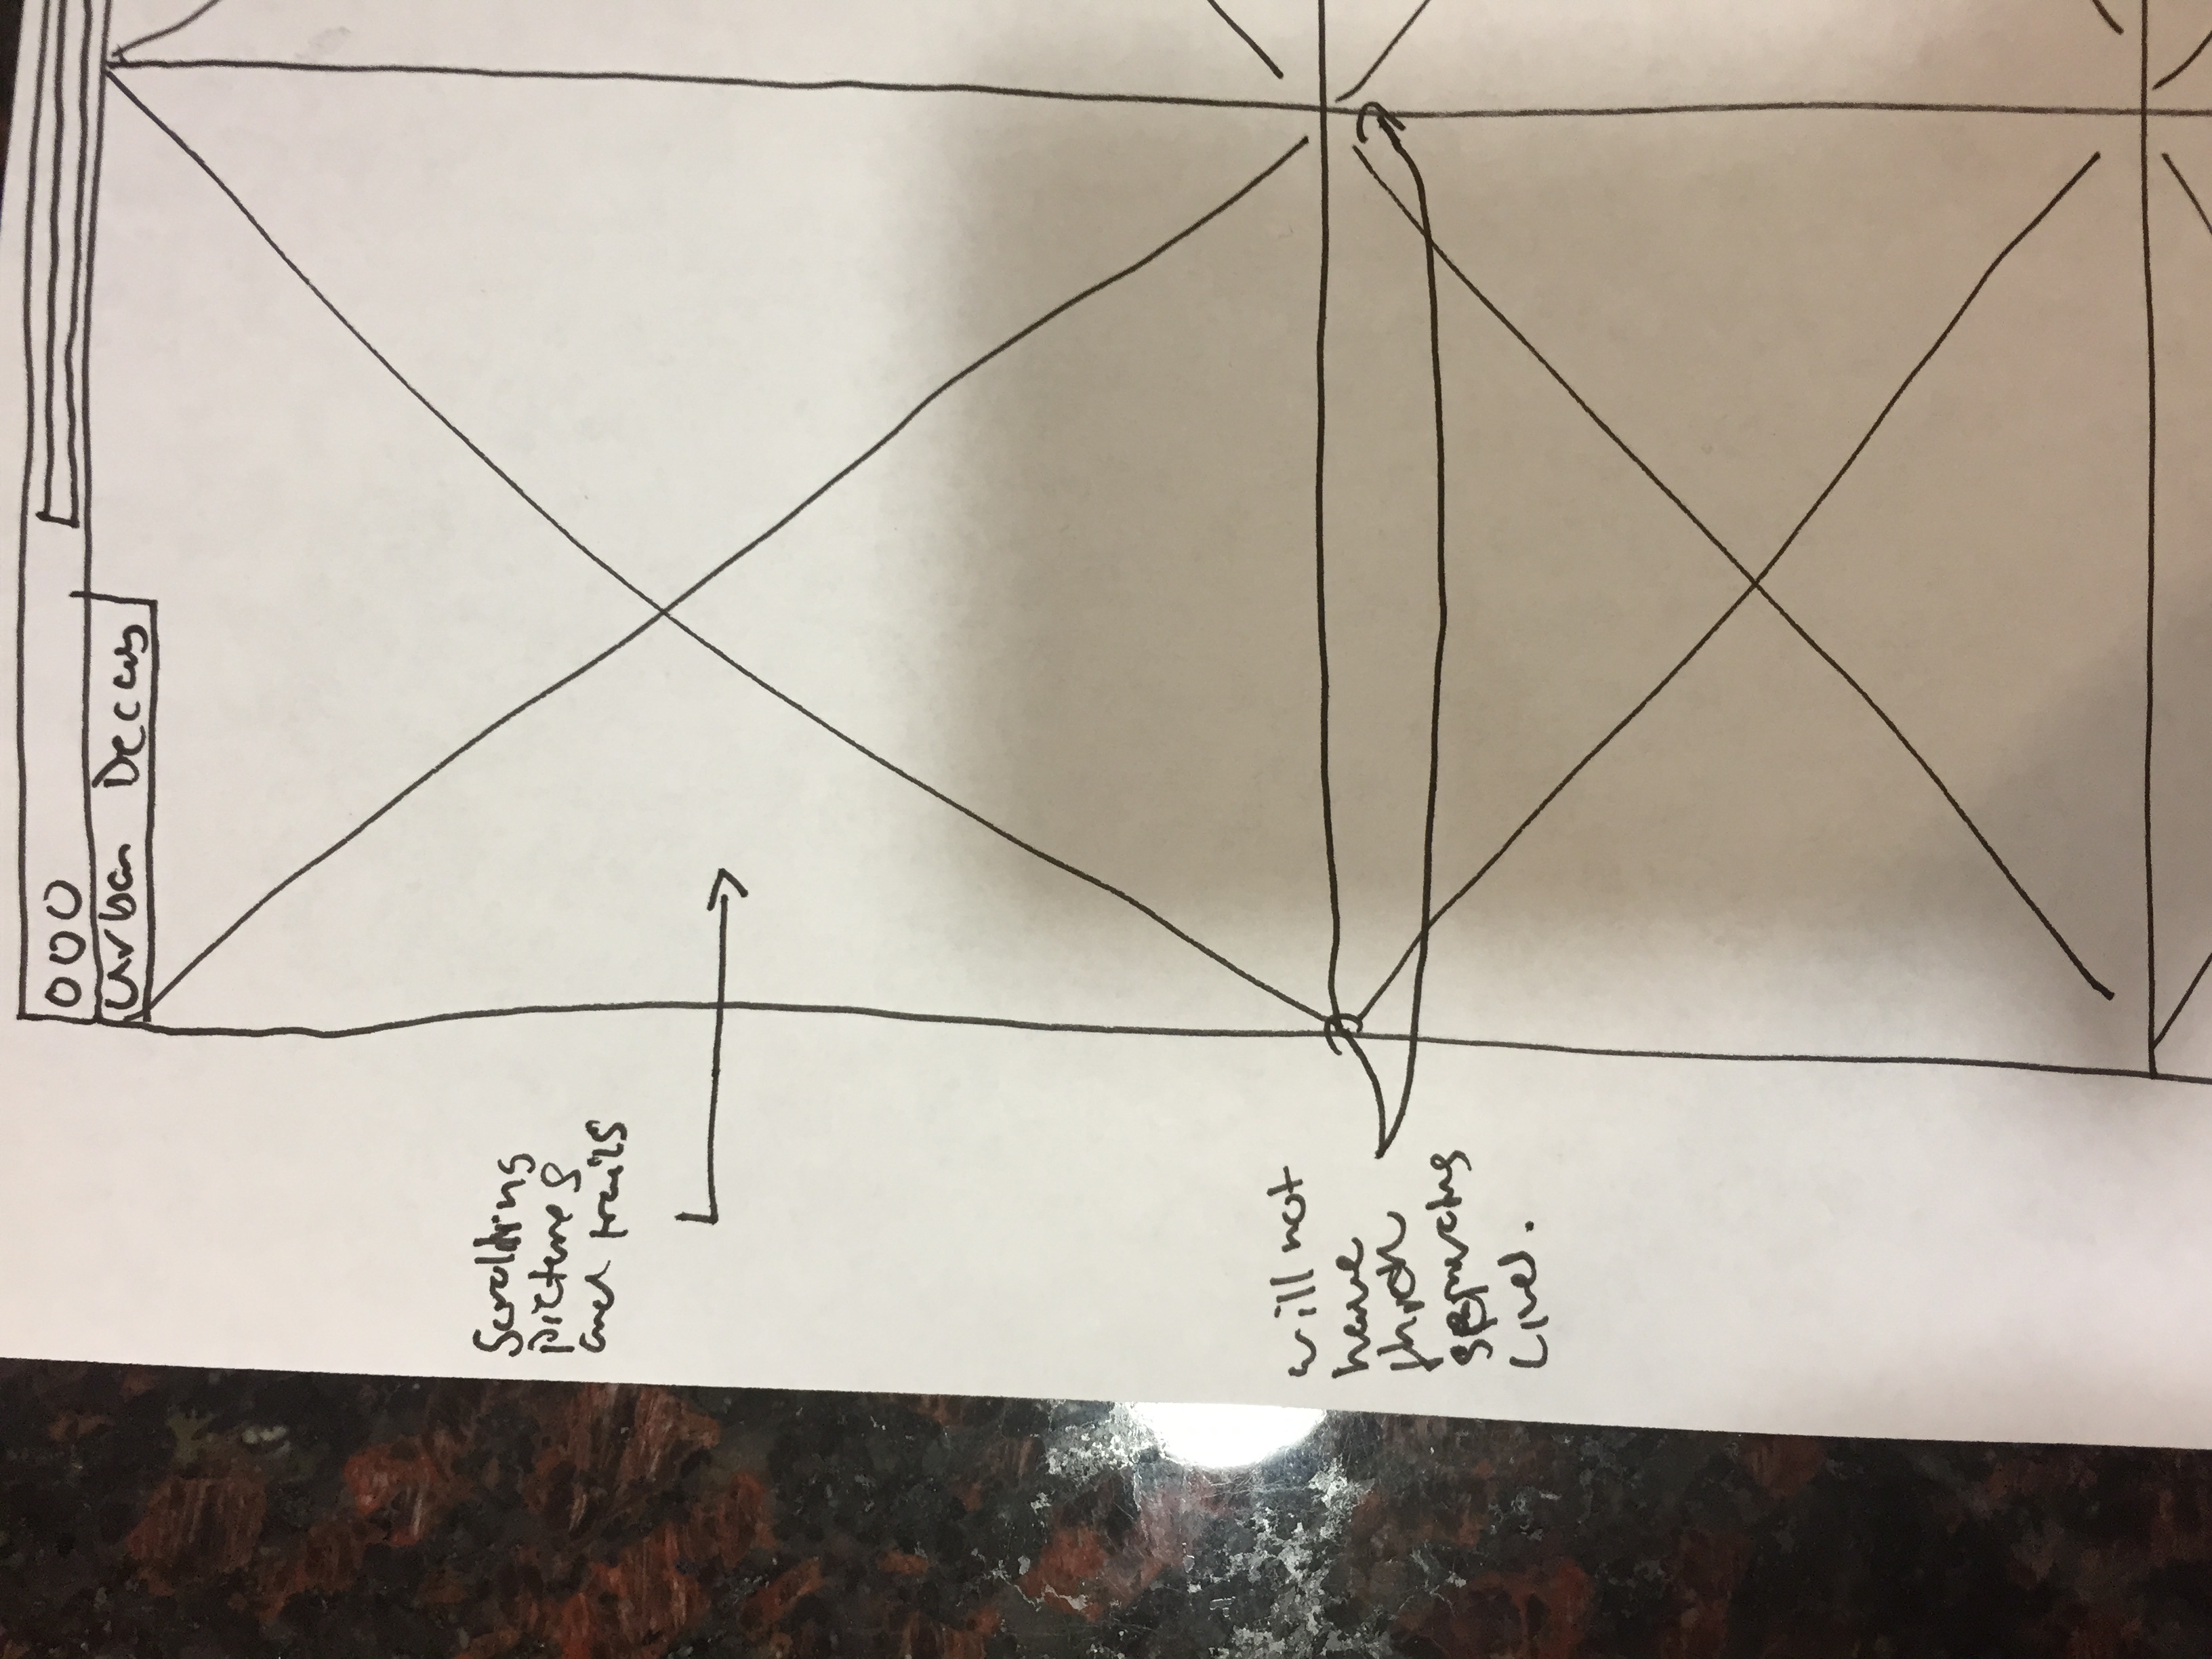 Urban Decay
Scrolling
pictures
and trails
will not
have
thick
separating
lines.